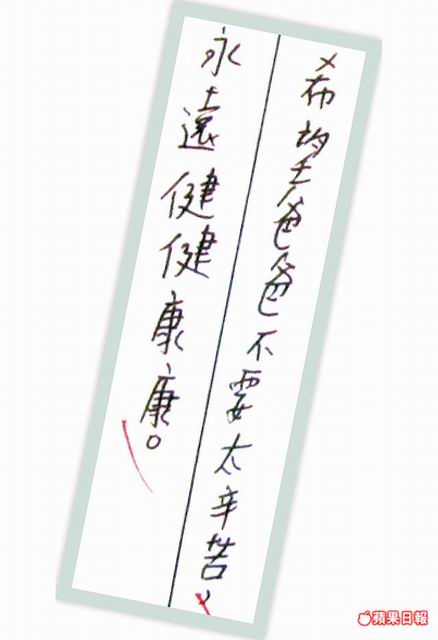 希望爸爸不要太辛苦，
永遠健健康康。
蘋果日報